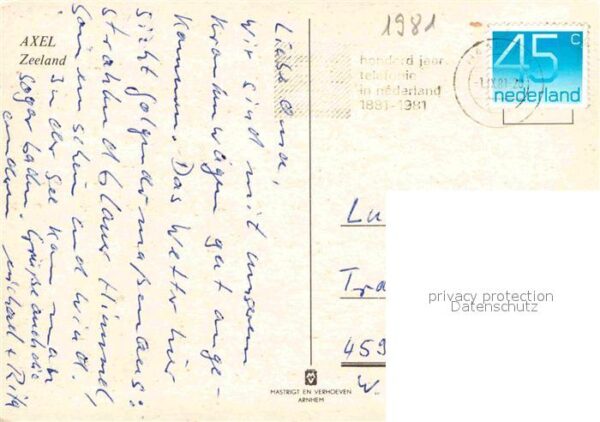 1981
AXEL
Zeeland
honderd jaar
telefonie
in nederland
1881-1981
-1.IX.81-20
45 c
nederland
wir sind mit unserem
Krankenwagen gut ange-
kommen. Das Wetter hier
sieht folgendermaßen aus:
strahlend blauer Himmel,
Sonnenschein und Wind.
In der See kann man
sogar baden. Grüße auch die
anderen Michael + Rita
Lu
Tra
459
W
privacy protection
Datenschutz
MASTRIGT EN VERHOEVEN
ARNHEM